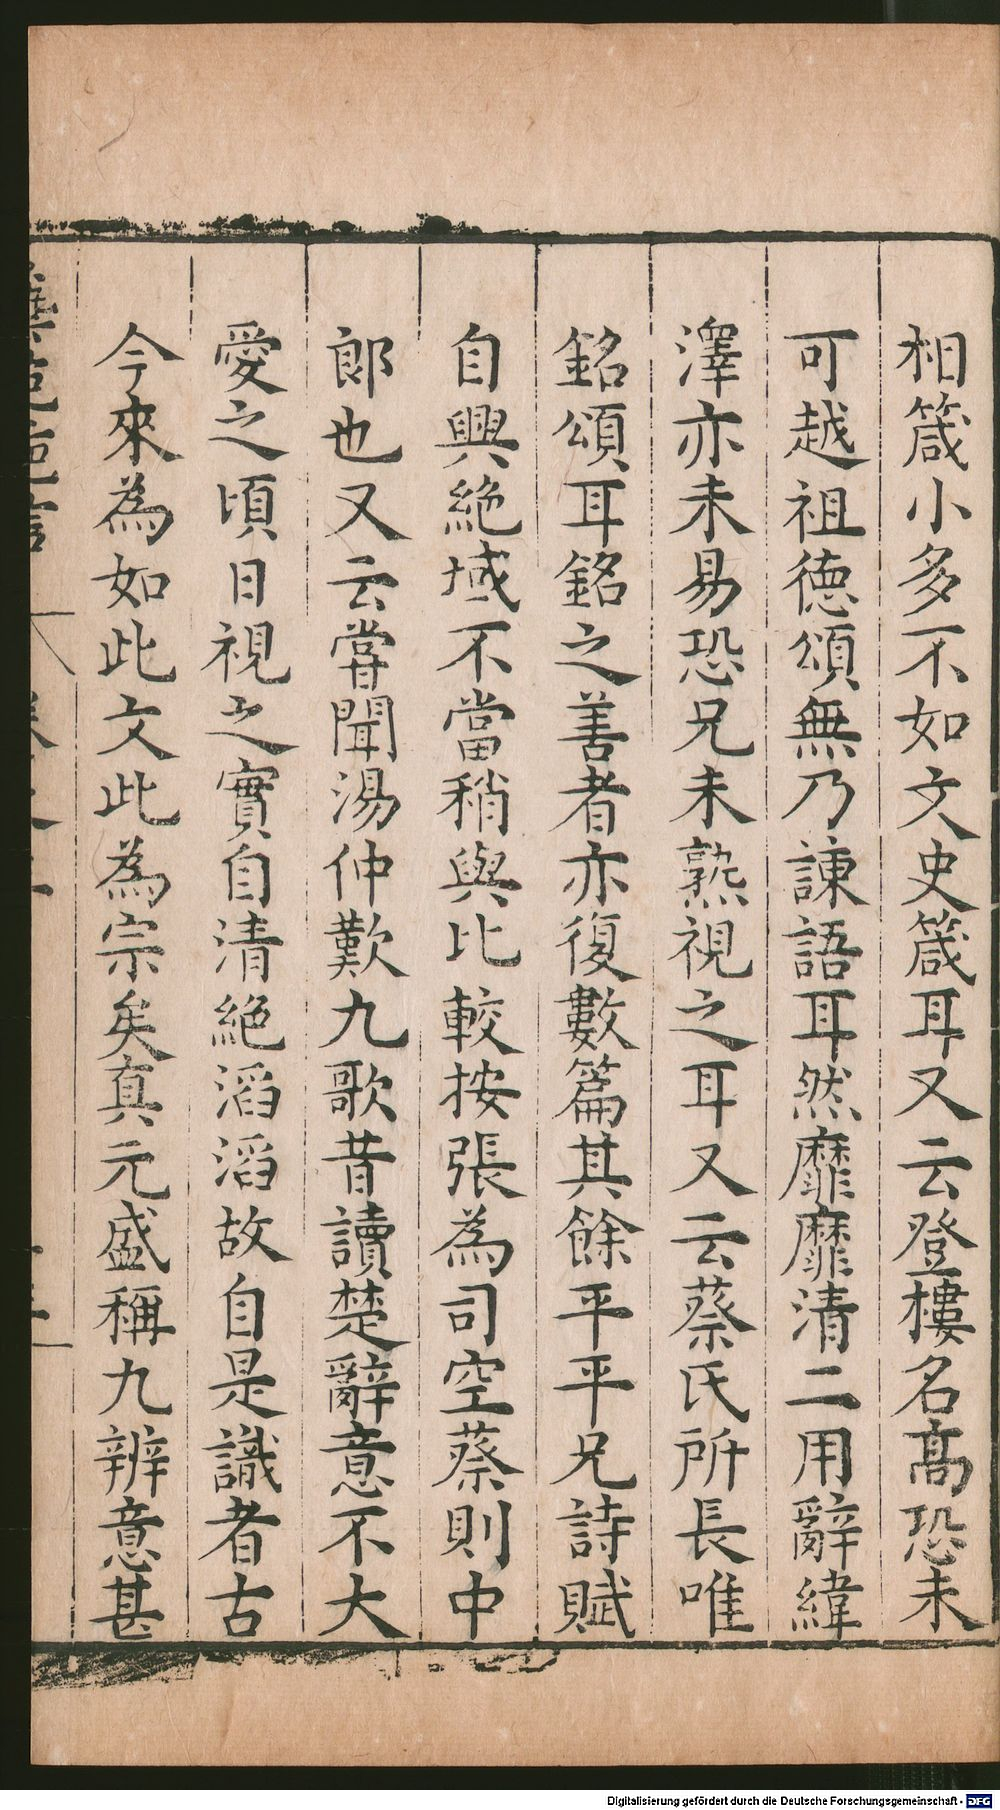 相箴小多不如文史箴耳又云登樓名高恐未
可越祖德頌無乃諫語耳然靡靡清工用辭緯
澤亦未易恐兄未熟視之耳又云蔡氏所長唯
銘頌耳銘之善者亦復數篇其餘平平兄詩賦
自興絕域不當稍與比較按張為司空蔡則中
郎也又云嘗聞湯仲歎九歌昔讀楚辭意不大
愛之頃日視之實自清絕滔滔故自是識者古
今來為如此文此為宗矣真元盛稱九辨意甚
Digitalisierung gefördert durch die Deutsche Forschungsgemeinschaft - DFG